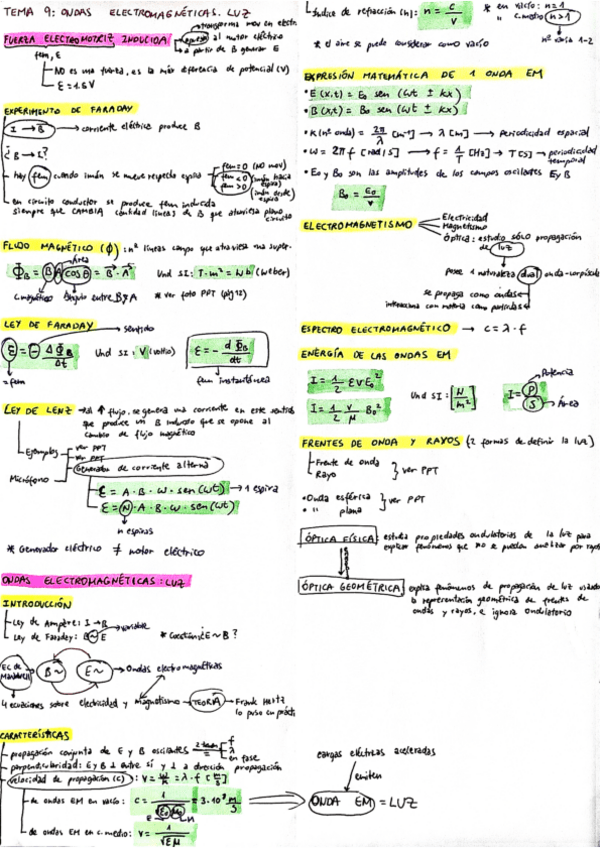 TEMA 9: ONDAS ELECTROMAGNÉTICAS. LUZ
FUERZA ELECTROMOTRIZ INDUCIDA
al motor eléctrico
a partir de B generar E
fem, E
NO es una fuerza, es la más diferencia de potencial (V)
EXPERIMENTO DE FARADAY
I → B → corriente eléctrica produce B
¿B → I?
hay fem cuando imán se mueve respecto espira
fem = 0 (NO mov)
fem < 0 (imán hacia espira)
fem > 0 (imán desde espira)
en circuito conductor se produce fem inducida
siempre que CAMBIA cantidad líneas de B que atraviesa plano circuito
FLUJO MAGNÉTICO (ϕ): nº líneas campo que atraviesa una super.
Área
Φ_B = B A cos θ = B · A
Und SI: T·m² = Wb (weber)
C.magnético ángulo entre B y A
* ver foto PPT (pág 12)
LEY DE FARADAY
sentido
ε = - ΔΦ_B / Δt
Und SI: V (voltio)
ε = - dΦ_B / dt
= fem
fem instantánea
LEY DE LENZ → Al ↑ flujo, se genera una corriente en este sentido
que produce un B inducido que se opone al
cambio de flujo magnético
Ejemplos
ver PPT
ver PPT
Generador de corriente alterna
Micrófono
ε = A · B · w · sen(wt) → 1 espira
ε = N · A · B · w · sen(wt)
n espiras
* Generador eléctrico ≠ motor eléctrico
ONDAS ELECTROMAGNÉTICAS: LUZ
INTRODUCCIÓN
Ley de Ampère: I → B
Ley de Faraday: B ~ E
variable
* Cuestión: ¿E ~ B?
EC de Maxwell
B ~ E ~ → Ondas electromagnéticas
4 ecuaciones sobre electricidad y magnetismo → TEORÍA → Frank Hertz
lo puso en práct.
CARACTERÍSTICAS
propagación conjunta de E y B oscilantes
f
λ
en fase
perpendicularidad: E y B ⊥ entre sí y ⊥ a dirección propagación
velocidad de propagación (c): v = w/k = λ · f [m/s]
de ondas EM en vacío: c = 1/√(ε₀ μ₀) = 3·10⁸ m/s
de ondas EM en c.medio: v = 1/√(εμ)
Índice de refracción (n): n = c/v
* en vacío: n = 1
" c.medio n > 1
nº entre 1-2
* el aire se puede considerar como vacío
EXPRESIÓN MATEMÁTICA DE 1 ONDA EM
• E(x,t) = E₀ sen (wt ± kx)
• B(x,t) = B₀ sen (wt ± kx)
• K (nº onda) = 2π/λ [m⁻¹] → λ [m] → periodicidad espacial
• w = 2πf [rad/s] → f = 1/T [Hz] → T [s] → periodicidad temporal
• E₀ y B₀ son las amplitudes de los campos oscilantes E y B
B₀ = E₀/v
ELECTROMAGNETISMO
Electricidad
Magnetismo
Óptica: estudia sólo propagación
de luz
posee 1 naturaleza dual onda-corpúscula
se propaga como ondas
interacciona con materia como partículas
ESPECTRO ELECTROMAGNÉTICO → c = λ · f
ENERGÍA DE LAS ONDAS EM
I = 1/2 ε v E₀²
I = 1/2 v/μ B₀²
I = P/S
Potencia
Área
FRENTES DE ONDA Y RAYOS (2 formas de definir la luz)
Frente de onda
Rayo
ver PPT
• Onda esférica
• " plana
ver PPT
ÓPTICA FÍSICA: estudia propiedades ondulatorias de la luz para
explicar fenómenos que no se pueden analizar por rayos
ÓPTICA GEOMÉTRICA: explica fenómenos de propagación de luz usando
la representación geométrica de frentes de
ondas y rayos, e ignora ondulatorio
cargas eléctricas aceleradas
emiten
ONDA EM = LUZ